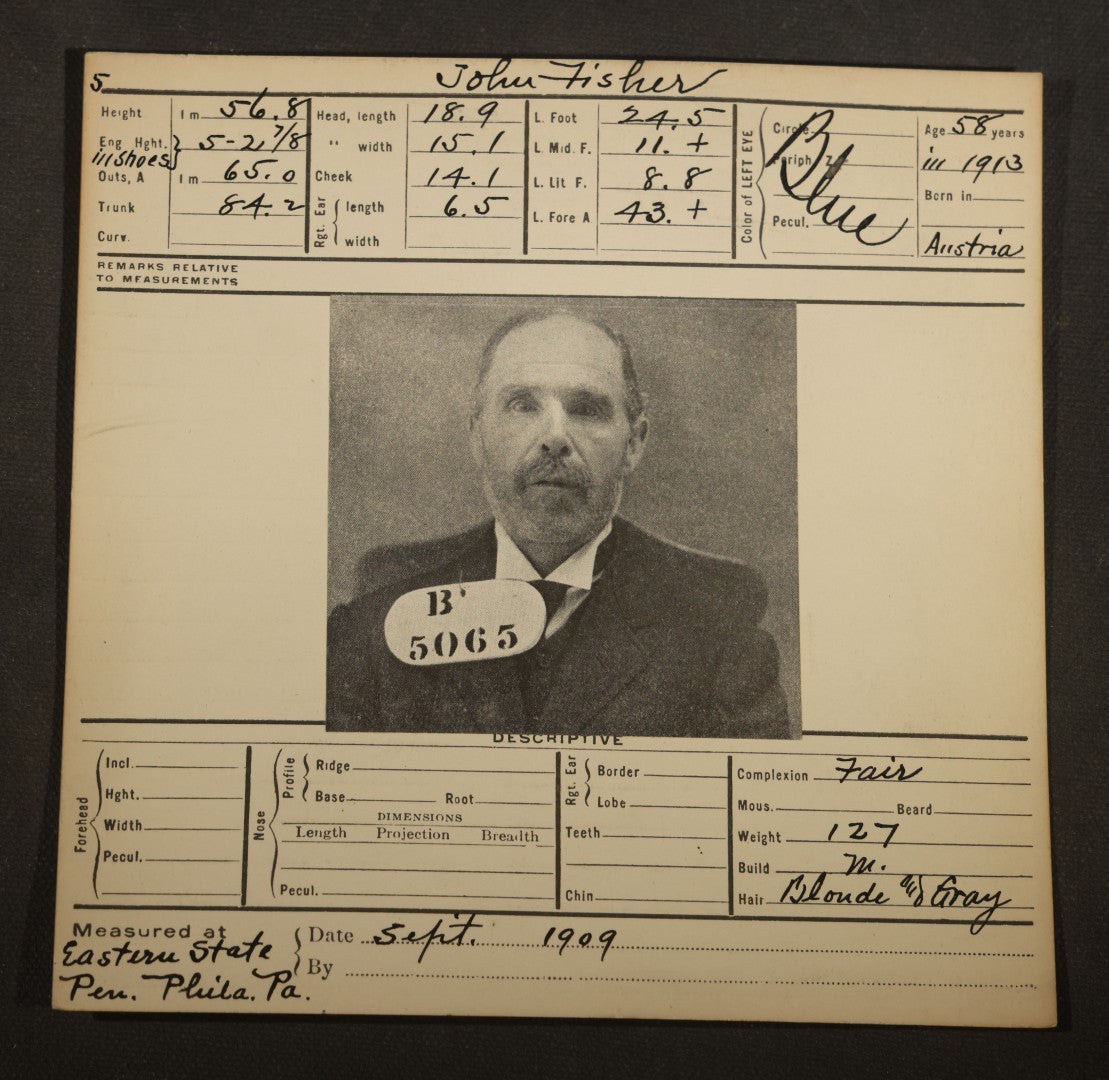 5 John Fisher
Height 1 m 56.8 Head, length 18.9 L. Foot 24.5 Circle Age 58 years
Eng Hght. 5-2 7/8 " width 15.1 L. Mid. F. 11. + Periph Z in 1913
in shoes
Outs, A 1 m 65.0 Cheek 14.1 L. Lit F. 8.8 Blue Born in
Trunk 84.2 Rgt. Ear length 6.5 L. Fore A 43. + Color of LEFT EYE Pecul.
Curv. width Austria
REMARKS RELATIVE
TO MEASUREMENTS
B'
5065
DESCRIPTIVE
Forehead Incl. Nose Profile Ridge Rgt. Ear Border Complexion Fair
Hght. Base Root Lobe Mous. Beard
Width DIMENSIONS
Length Projection Breadth Teeth Weight 127
Pecul. Build M.
Pecul. Chin Hair Blonde & Gray
Measured at Date Sept. 1909
Eastern State By
Pen. Phila. Pa.